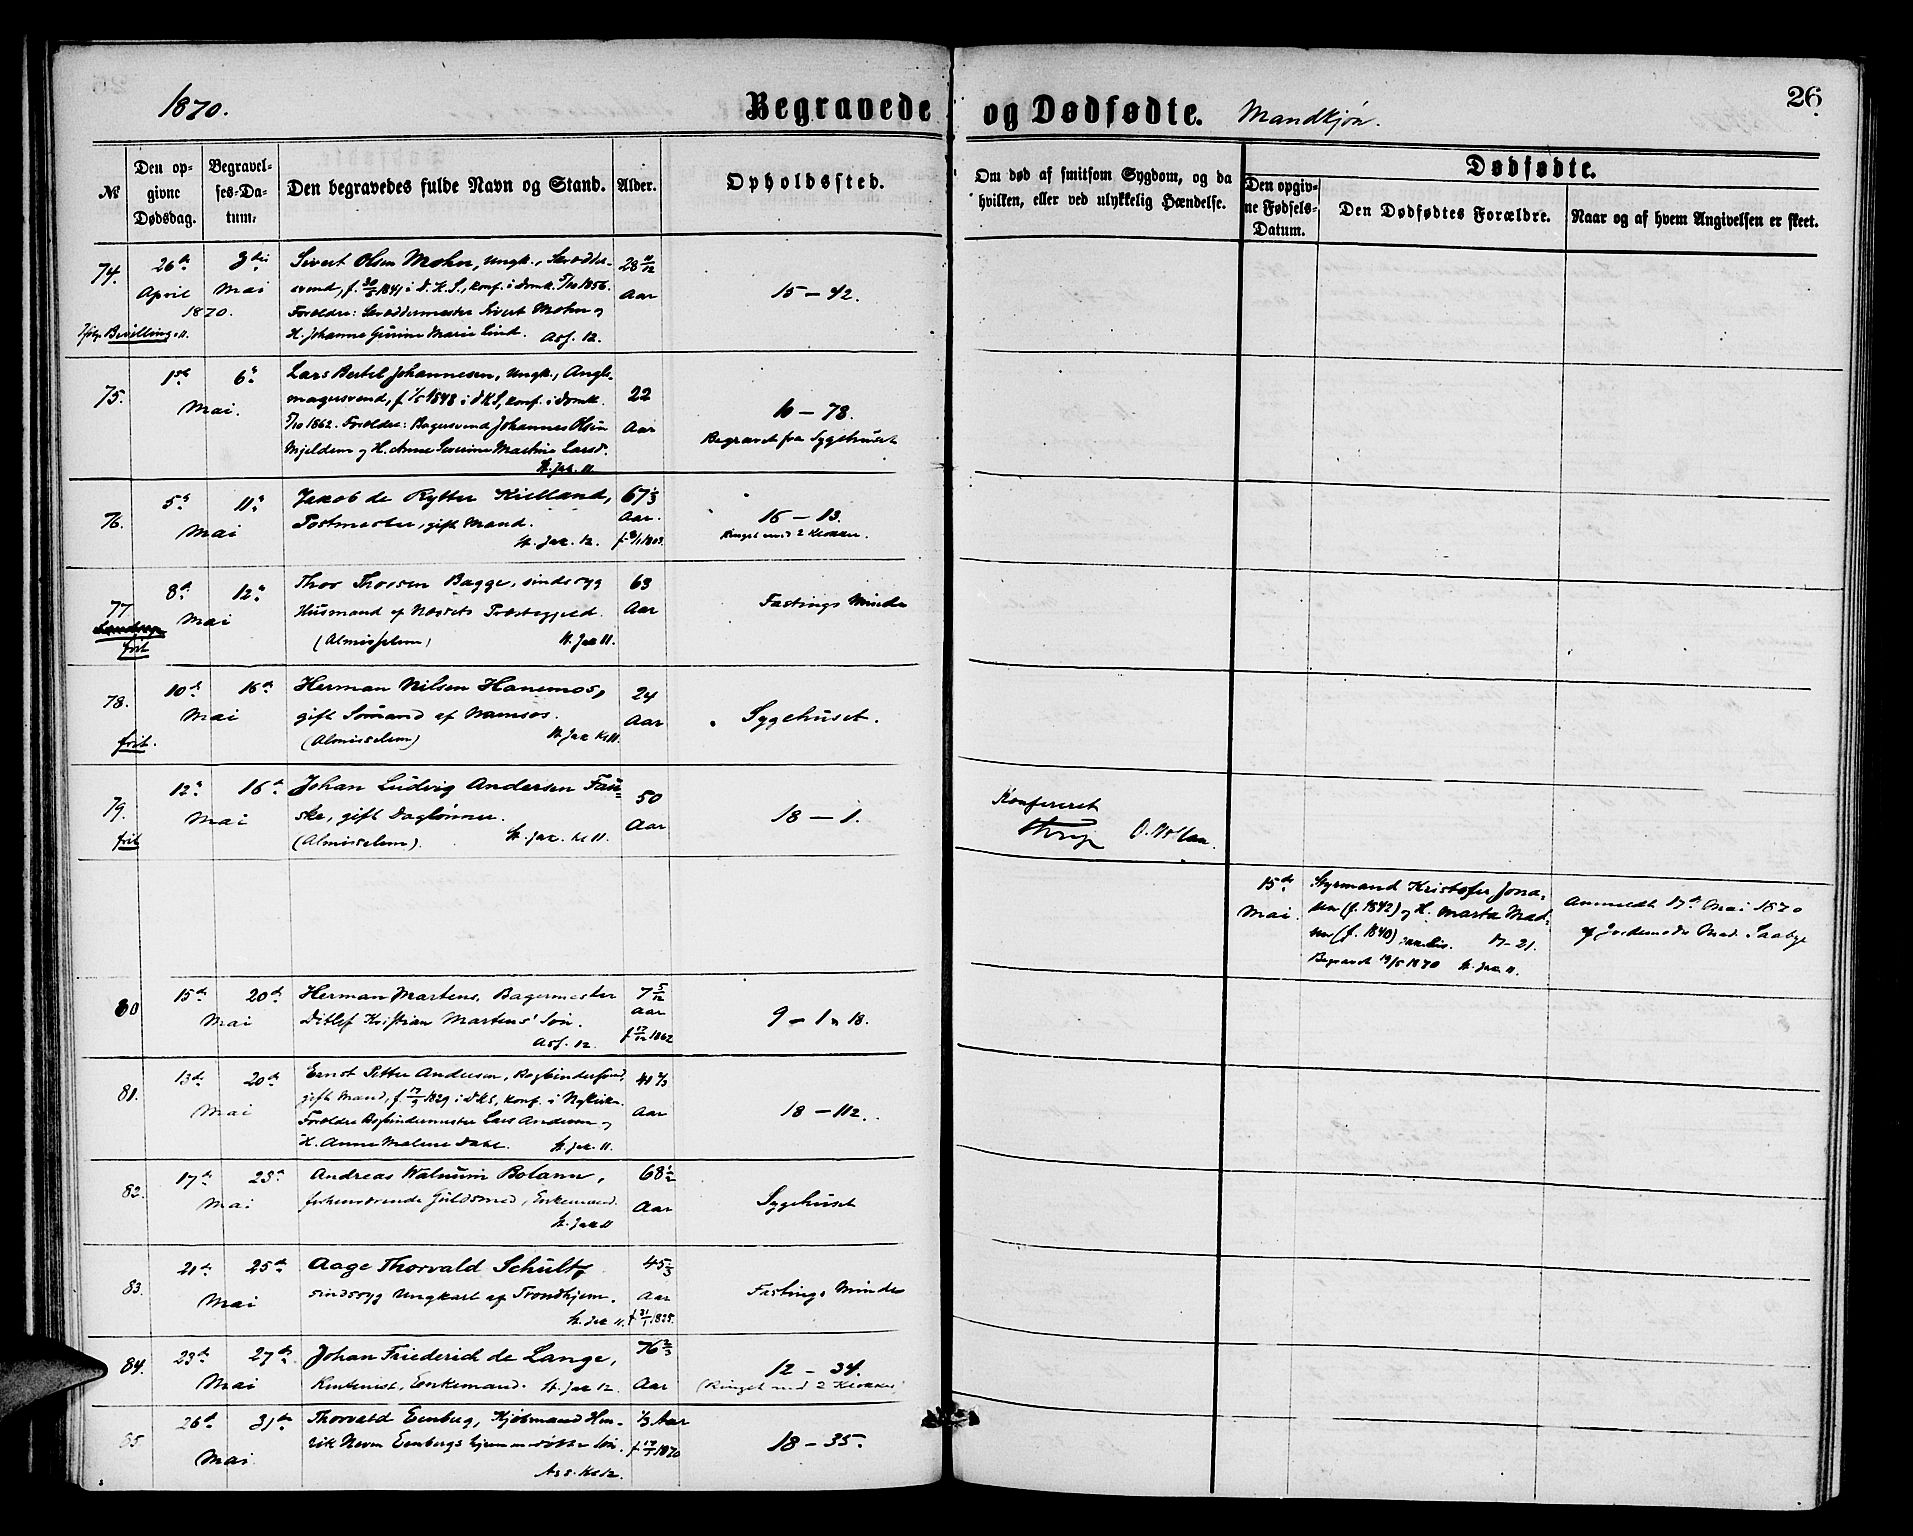 1870.
Begravede og Dødfødte. Mandkjøn.
26
№
Den opgivne Dødsdag.
Begravelses-Datum.
Den begravedes fulde Navn og Stand.
Alder.
Opholdssted.
Om død af smitsom Sygdom, og da hvilken, eller ved ulykkelig Hændelse.
Dødfødte.
Den opgivne Fødsels-Datum.
Den Dødfødtes Forældre.
Naar og af hvem Angivelsen er skeet.
74.
26de
April
1870.
Bevilling
3die
Mai
Sivert Olsen Mohn, Ungk., Skrædder-
svend, f. 30/5 1841 i D.K.S., konf. i Domk. 5/10 1856.
Forældre: Skræddermester Sivert Mohn og
H. Johanne Gurine Marie Lind. Ass. 12.
28 11/12
Aar
15 – 42.
75.
1ste
6te
Mai.
Lars Bertel Johannesen, Ungk.,
magersvend, f. 1/5 1848 i DKS, konf. i Domk.
5/10 1862. Forældre: Bagersvend Johannes Olsen
Mjeldem og H. Anne Severine Martine Larsd.
St. Jak. 11.
22
Aar
10 – 78.
Begravet fra Sygehuset
76.
5te
11te
Mai
Jakob de Rytter Kielland,
Postmester, gift Mand.
St. Jak. 12.
67 1/3
Aar.
16 – 13.
Ringet med 2 Klokker.
77
frit
8de
12te
Mai
Thor Thorsen Bagge, sindssyg
Husmand af Næssets Præstegjeld.
(Almisselem) St. Jak 11.
63
Aar
Fastings Minde
78.
frit.
10de
16de
Mai
Herman Nilsen Hanemos,
gift Sømand af Namsos.
(Almisselem) St. Jak Kl 11.
24
Aar
Sygehuset.
79.
frit
12te
16de
Mai
Johan Ludvig Andersen Fau-
ske, gift Daglønner.
(Almisselem). St. Jak. Kl 11.
50
Aar
18 – 1.
Konfereret
15de
Mai.
Styrmand Kristofer Jona-
sen (f. 1842) og H. Marta Mad-
sen (f. 1840) 17–21.
Begravet 19/5 1870 St. Jak 11.
Anmeldt 17de Mai 1870
af Jordemoder Mad. Saabye
80
15de
20de
Mai
Herman Martens, Bagermester
Ditlef Kristian Martens' Søn.
Ass. 12.
7 5/12
Aar
f. 17/12 1862
9 – 1 18.
81.
13de
20de
Mai
Ernst Petter Andersen, Bogbindersvend,
gift Mand, f. 17/9 1829 i DKS, konf. i Nykirk.
Forældre Bogbindermester Lars Andersen og
H. Anne Malene Dahl. St. Jak 11.
40 2/3
Aar
18 – 112.
82.
17de
23de
Mai
Andreas Walnum Bolann,
forhenværende Guldsmed, Enkemand.
St. Jak 11
68 1/2
Aar
Sygehuset
83.
21de
25de
Mai
Aage Thorvald Schultz
sindssyg Ungkarl af Trondhjem.
St. Jak 11.
45 1/3
Aar
f. 31/1 1825.
Fastings Minde
84.
23de
27de
Mai
Johan Friederich de Lange,
Rentenist, Enkemand. St. Jak 12.
76 2/3
Aar
12 – 34.
(Ringet med 2 Klokker)
85
26de
31te
Mai
Thorvald Eenberg, Kjøbmand Hen-
rik Eenbergs hjemmedøbte Søn.
Ass. Kl 12.
1/3 Aar
f. 17/1 1870
18 – 35.